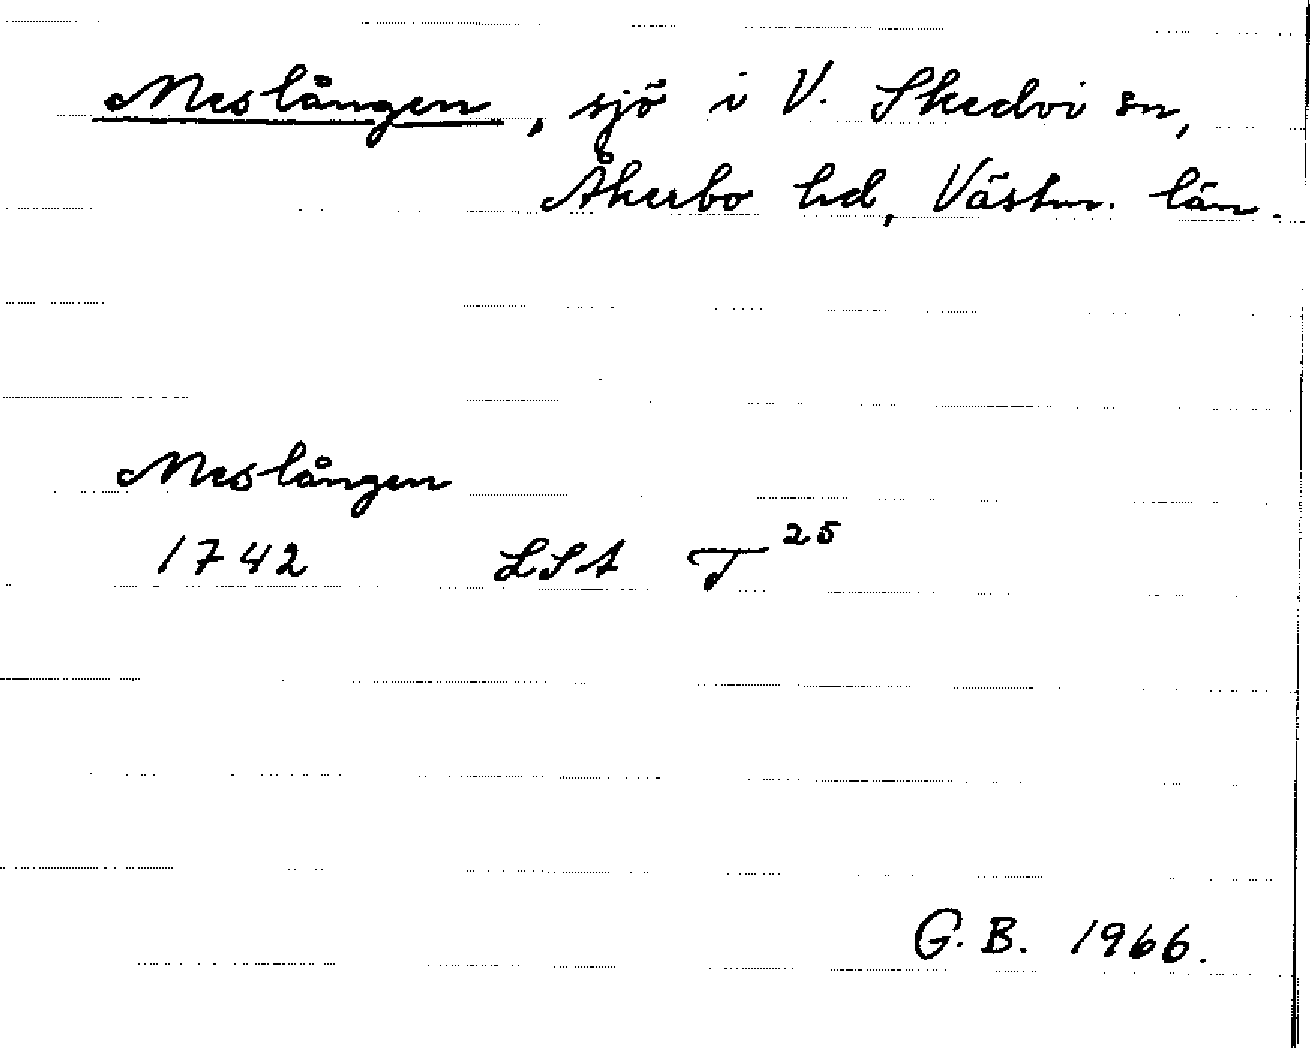 Meslången, sjö i V. Skedvi sn,
Åkerbo hd, Västm. län.
Meslången
1742 LSA T 25
G. B. 1966.